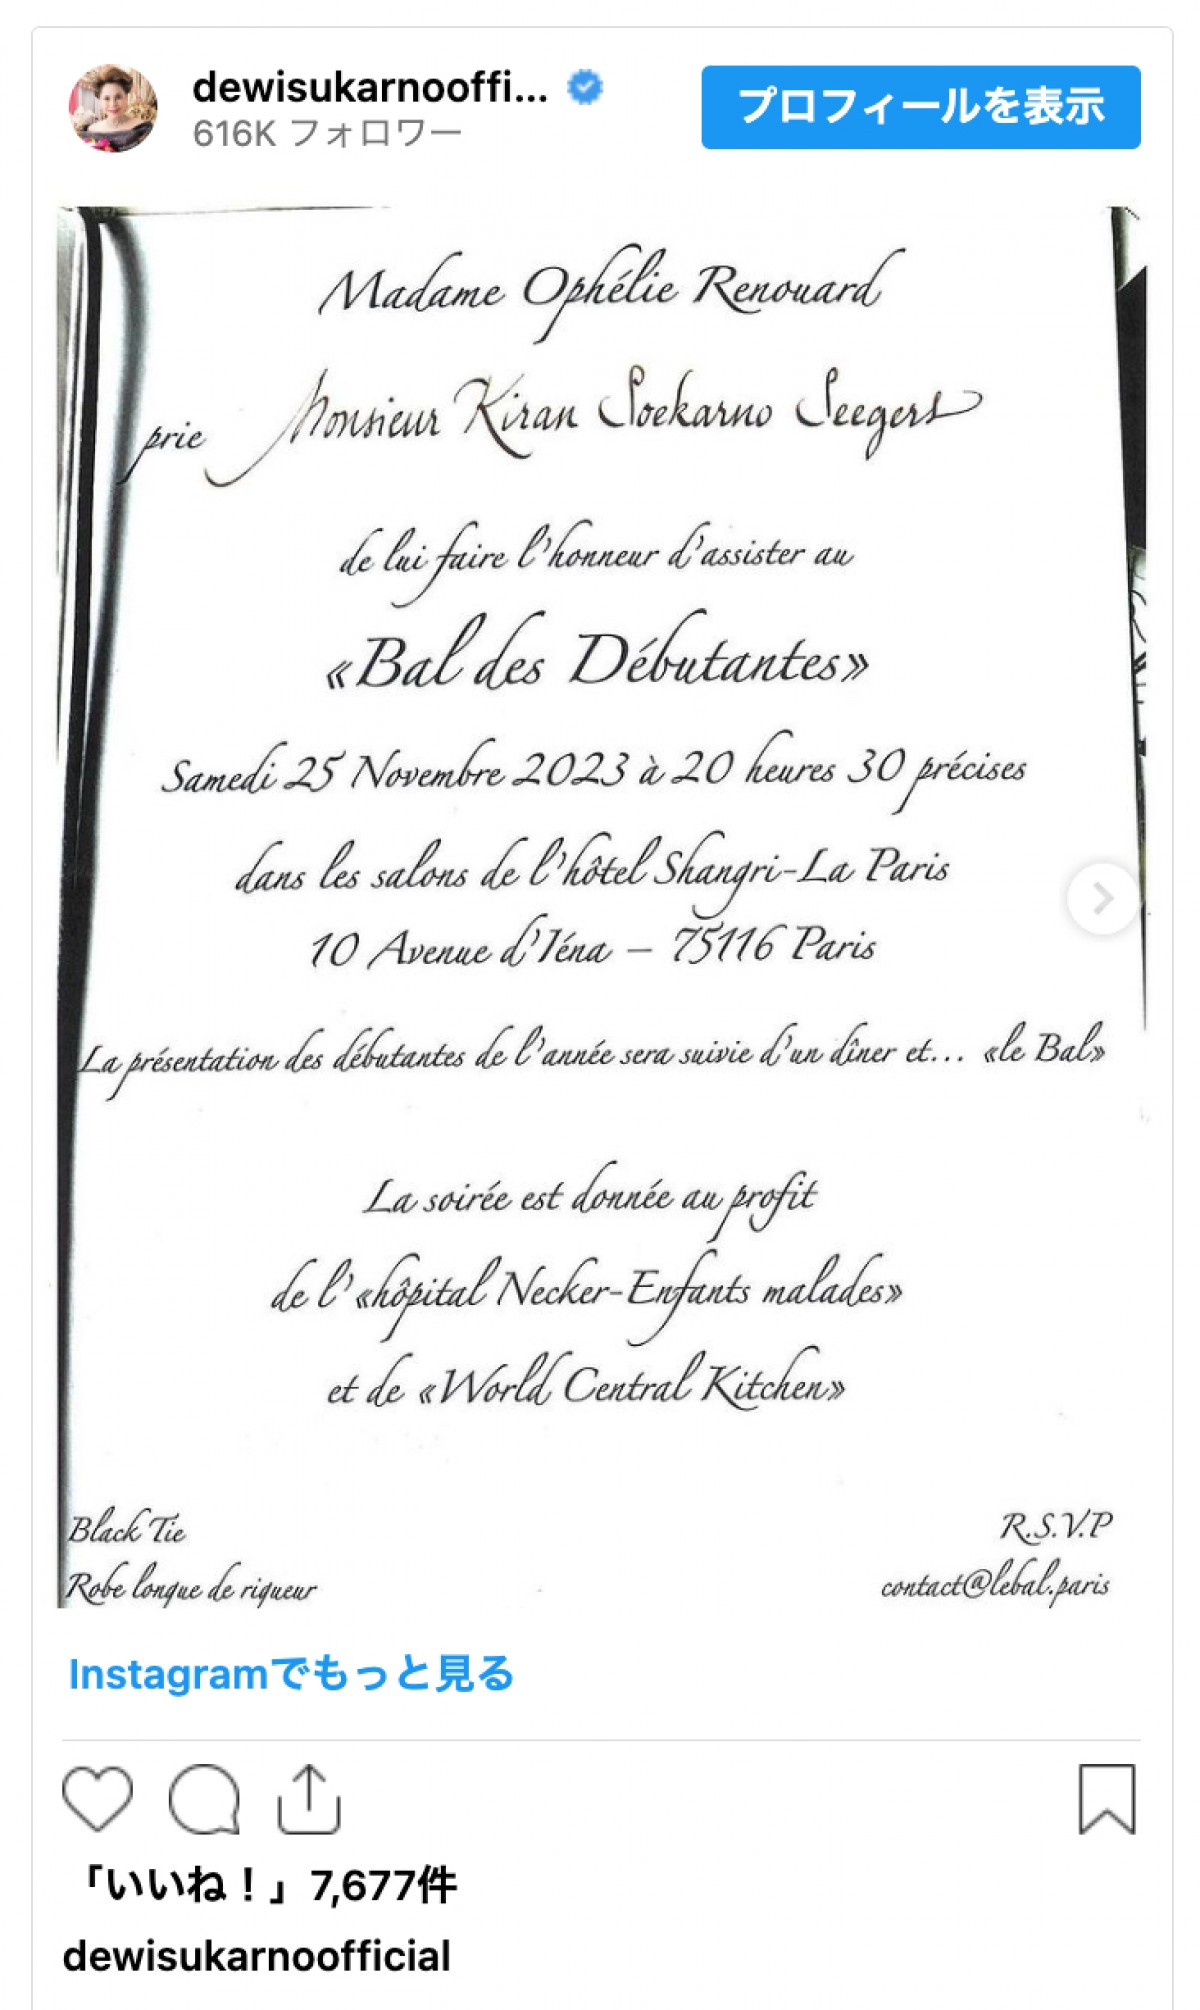 dewisukarnooffi...
616K フォロワー
プロフィールを表示
Madame Ophélie Renouard
prie Monsieur Kiran Soekarno Seegers
de lui faire l'honneur d'assister au
«Bal des Débutantes»
Samedi 25 Novembre 2023 à 20 heures 30 précises
dans les salons de l'hôtel Shangri-La Paris
10 Avenue d'Iéna – 75116 Paris
La présentation des débutantes de l'année sera suivie d'un dîner et... «le Bal»
La soirée est donnée au profit
de l'«hôpital Necker-Enfants malades»
et de «World Central Kitchen»
Black Tie
Robe longue de rigueur
R.S.V.P
contact@lebal.paris
Instagramでもっと見る
「いいね！」7,677件
dewisukarnoofficial